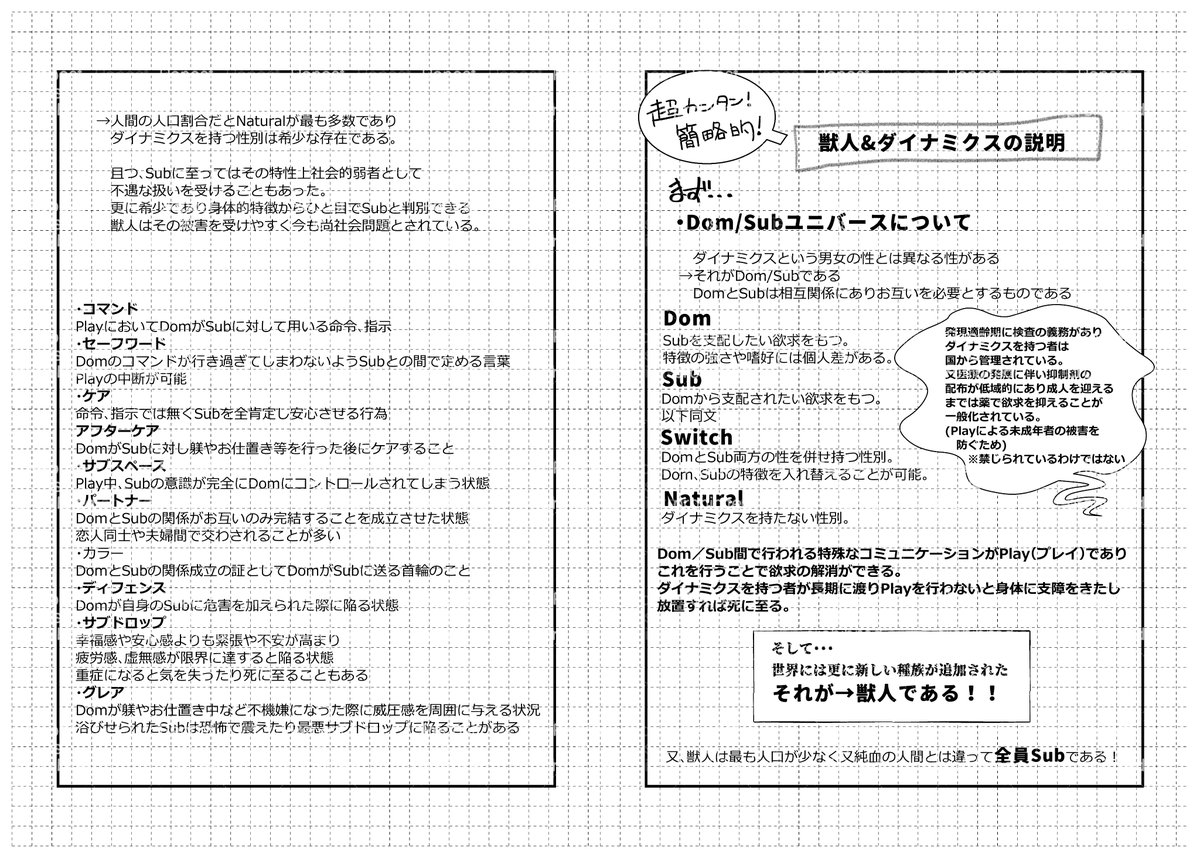 超カンタン！
簡略的！
獣人&ダイナミクスの説明
まず...
・Dom/Subユニバースについて
ダイナミクスという男女の性とは異なる性がある
→それがDom/Subである
DomとSubは相互関係にありお互いを必要とするものである
Dom
Subを支配したい欲求をもつ。
特徴の強さや嗜好には個人差がある。
Sub
Domから支配されたい欲求をもつ。
以下同文
Switch
DomとSub両方の性を併せ持つ性別。
Dom、Subの特徴を入れ替えることが可能。
Natural
ダイナミクスを持たない性別。
発現適齢期に検査の義務があり
ダイナミクスを持つ者は
国から管理されている。
又医療の発展に伴い抑制剤の
配布が低域的にあり成人を迎える
までは薬で欲求を抑えることが
一般化されている。
(Playによる未成年者の被害を
防ぐため)
※禁じられているわけではない
Dom／Sub間で行われる特殊なコミュニケーションがPlay(プレイ)であり
これを行うことで欲求の解消ができる。
ダイナミクスを持つ者が長期に渡りPlayを行わないと身体に支障をきたし
放置すれば死に至る。
そして・・・
世界には更に新しい種族が追加された
それが→獣人である！！
又、獣人は最も人口が少なく又純血の人間とは違って全員Subである！
→人間の人口割合だとNaturalが最も多数であり
ダイナミクスを持つ性別は希少な存在である。
且つ、Subに至ってはその特性上社会的弱者として
不遇な扱いを受けることもあった。
更に希少であり身体的特徴からひと目でSubと判別できる
獣人はその被害を受けやすく今も尚社会問題とされている。
・コマンド
PlayにおいてDomがSubに対して用いる命令、指示
・セーフワード
Domのコマンドが行き過ぎてしまわないようSubとの間で定める言葉
Playの中断が可能
・ケア
命令、指示では無くSubを全肯定し安心させる行為
アフターケア
DomがSubに対し躾やお仕置き等を行った後にケアすること
・サブスペース
Play中、Subの意識が完全にDomにコントロールされてしまう状態
・パートナー
DomとSubの関係がお互いのみ完結することを成立させた状態
恋人同士や夫婦間で交わされることが多い
・カラー
DomとSubの関係成立の証としてDomがSubに送る首輪のこと
・ディフェンス
Domが自身のSubに危害を加えられた際に陥る状態
・サブドロップ
幸福感や安心感よりも緊張や不安が高まり
疲労感、虚無感が限界に達すると陥る状態
重症になると気を失ったり死に至ることもある
・グレア
Domが躾やお仕置き中など不機嫌になった際に威圧感を周囲に与える状況
浴びせられたSubは恐怖で震えたり最悪サブドロップに陥ることがある